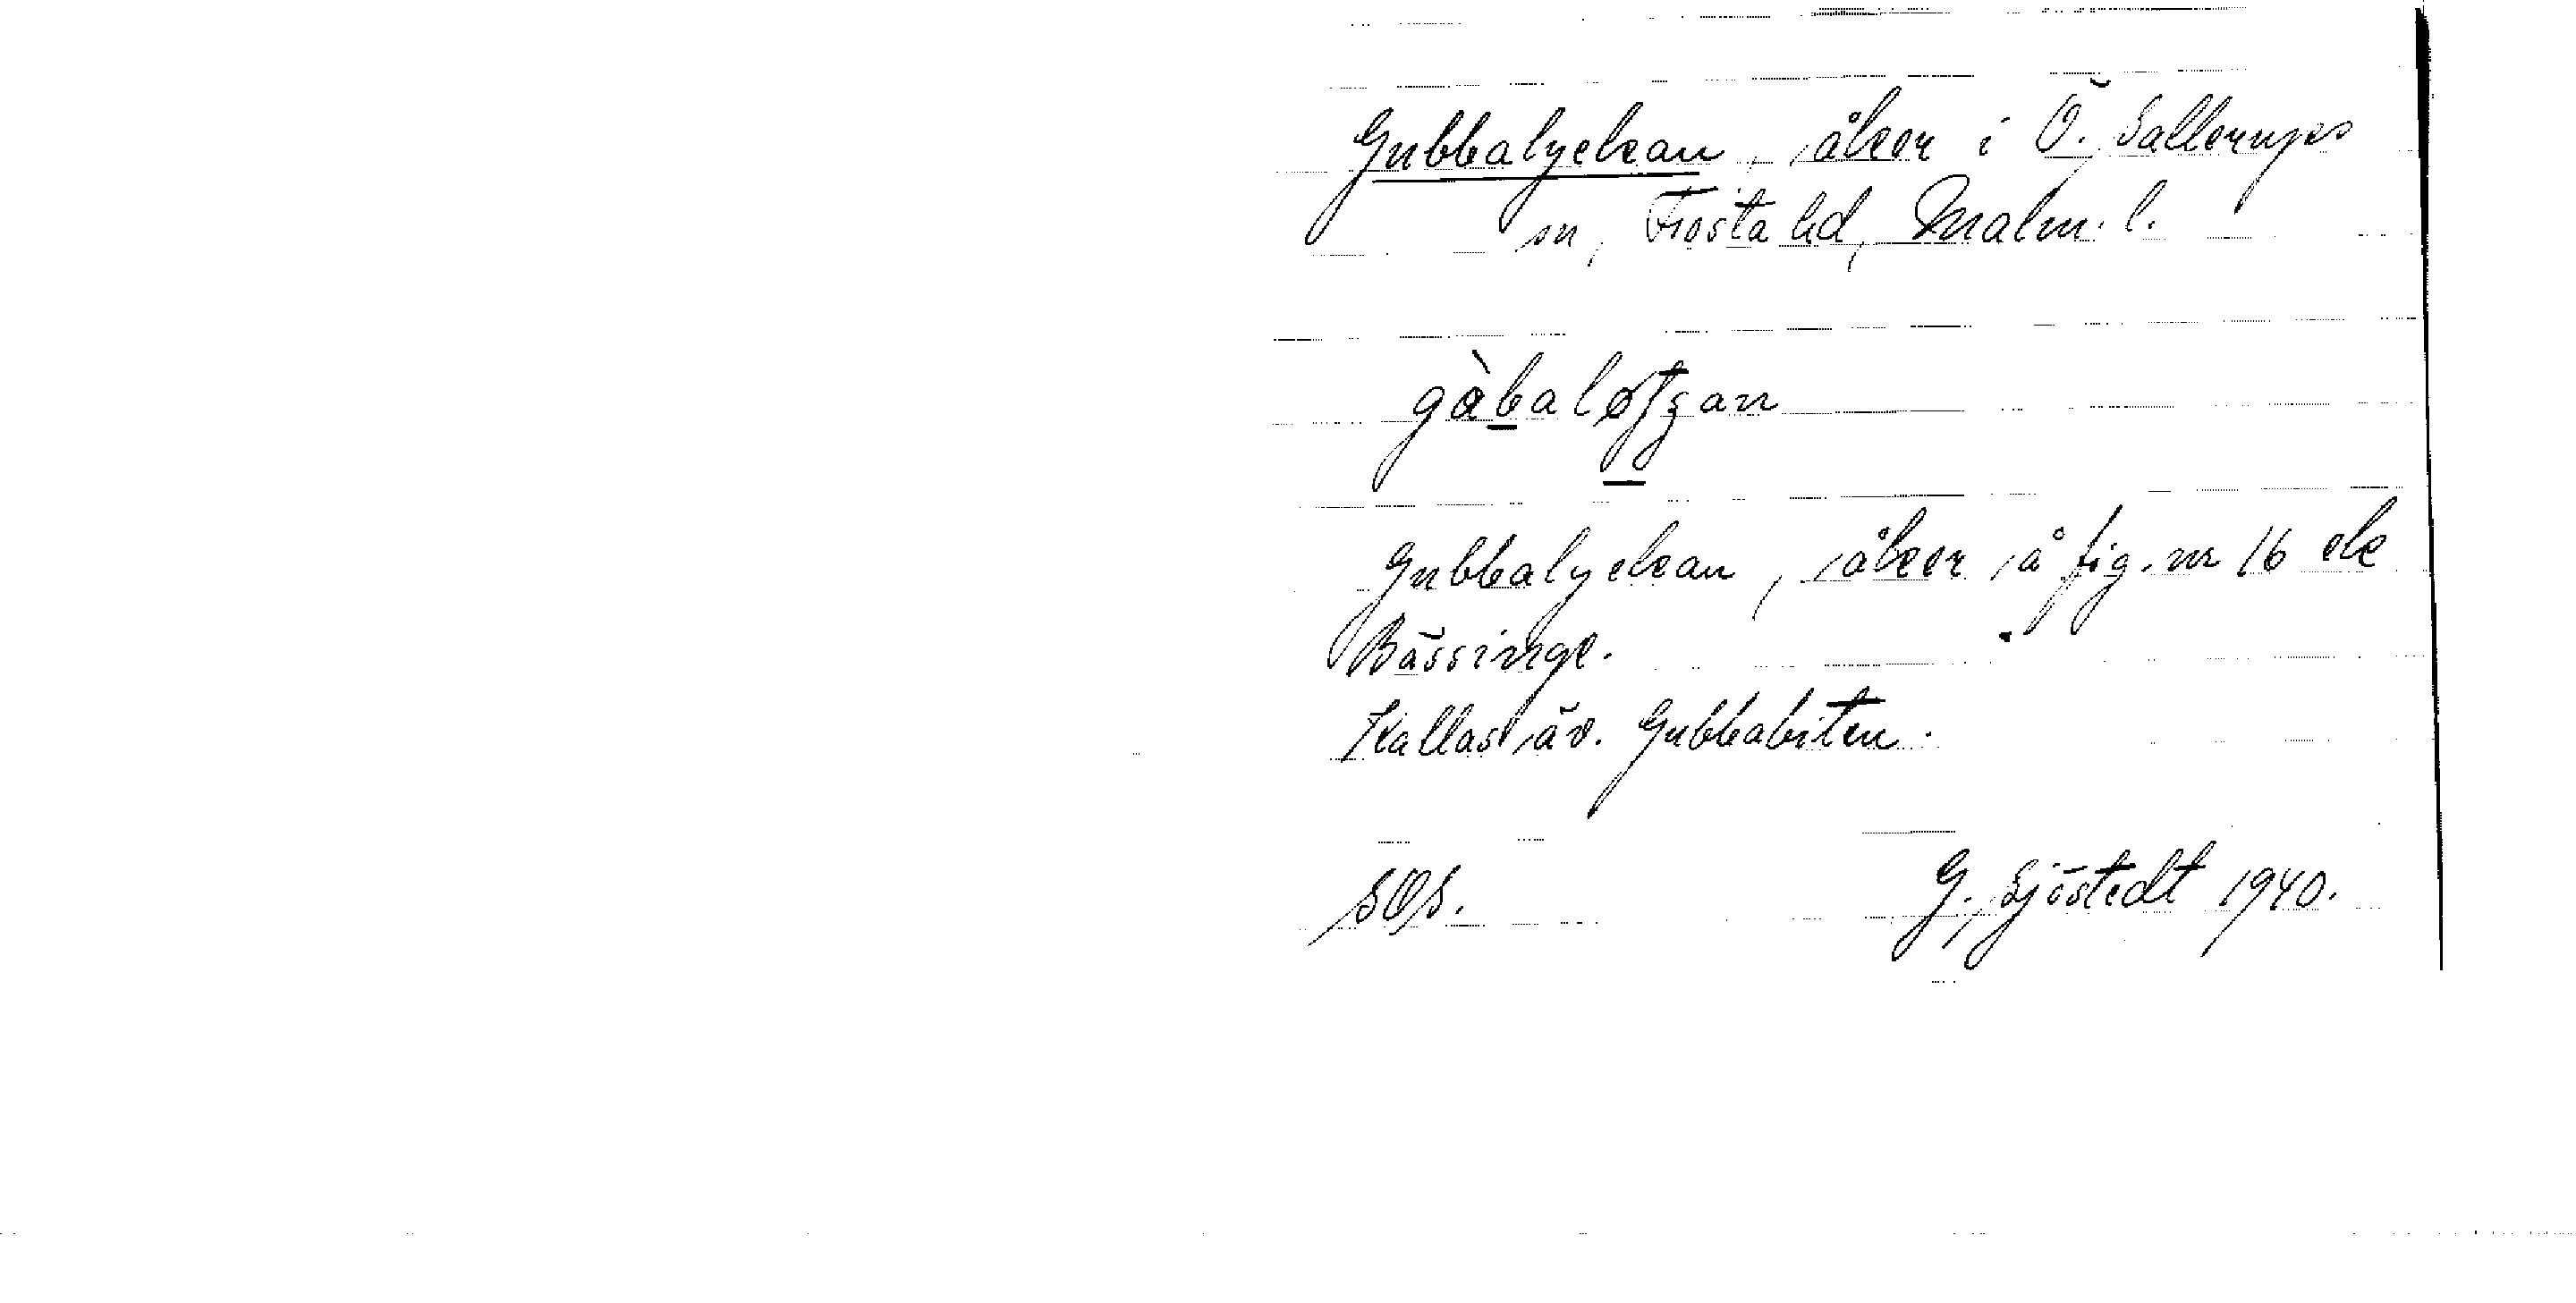 Gubbalyckan, åker i Ö. Sallerups
sn, Frosta hd, Malm. l.
gàbaløtʃan
Gubbalyckan, åker å fig. nr 16 ek
Bässinge.
Kallas äv. Gubbabiten.
SOS. G. Sjöstedt 1940.